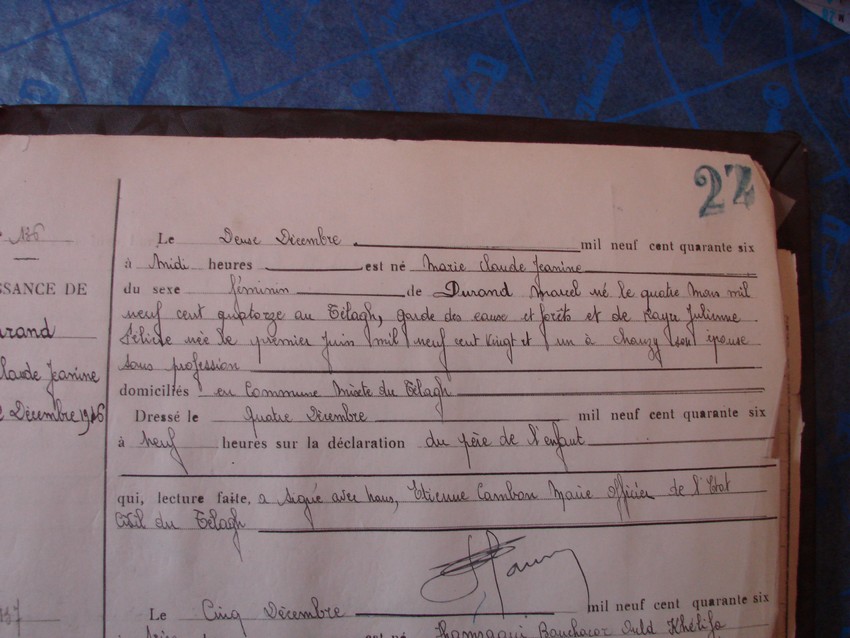 27
136
Le Deux Décembre mil neuf cent quarante six
à Midi heures est né Marie Claude Jeanine
SSANCE DE
du sexe féminin de Durand Marcel né le quatre Mars mil
neuf cent quatorze au Télagh, garde des eaux et forêts et de Raye Julienne
urand
Félicie née le premier Juin mil neuf cent vingt et un à Chanzy son épouse
sans profession
laude Jeanine
domiciliés en Commune Mixte du Télagh
Décembre 1946
Dressé le quatre Décembre mil neuf cent quarante six
à Neuf heures sur la déclaration du père de l'enfant
qui, lecture faite, a signé avec nous, Etienne Cambon Maire Officier de l'Etat
Civil du Télagh
137
Le Cinq Décembre mil neuf cent quarante six
est né Bouchacor Ould Khélifa